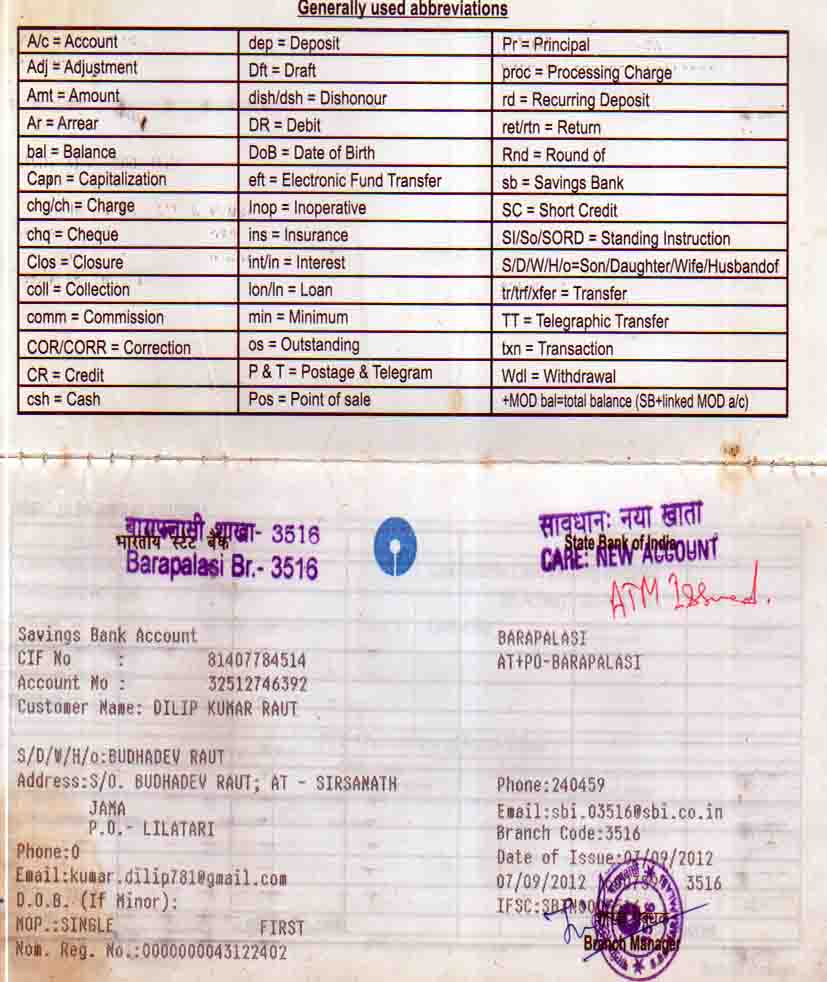 Generally used abbreviations
A/c = Account dep = Deposit Pr = Principal
Adj = Adjustment Dft = Draft proc = Processing Charge
Amt = Amount dish/dsh = Dishonour rd = Recurring Deposit
Ar = Arrear DR = Debit ret/rtn = Return
bal = Balance DoB = Date of Birth Rnd = Round of
Capn = Capitalization eft = Electronic Fund Transfer sb = Savings Bank
chg/ch = Charge Inop = Inoperative SC = Short Credit
chq = Cheque ins = Insurance SI/So/SORD = Standing Instruction
Clos = Closure int/in = Interest S/D/W/H/o=Son/Daughter/Wife/Husbandof
coll = Collection lon/ln = Loan tr/trf/xfer = Transfer
comm = Commission min = Minimum TT = Telegraphic Transfer
COR/CORR = Correction os = Outstanding txn = Transaction
CR = Credit P & T = Postage & Telegram Wdl = Withdrawal
csh = Cash Pos = Point of sale +MOD bal=total balance (SB+linked MOD a/c)
शाखा- 3516 सावधानः नया खाता
भारतीय स्टेट बैंक State Bank of India
Barapalasi Br.- 3516 CARE: NEW ACCOUNT
ATM Issued.
Savings Bank Account BARAPALASI
CIF No : 81407784514 AT+PO-BARAPALASI
Account No : 32512746392
Customer Name: DILIP KUMAR RAUT
S/D/W/H/o:BUDHADEV RAUT
Address:S/O. BUDHADEV RAUT; AT - SIRSANATH Phone:240459
JAMA Email:sbi.03516@sbi.co.in
P.O.- LILATARI Branch Code:3516
Phone:0 Date of Issue:07/09/2012
Email:kumar.dilip781@gmail.com 07/09/2012 3516
D.O.B. (If Minor):
MOP.:SINGLE FIRST
Nom. Reg. No.:0000000043122402 Branch Manager